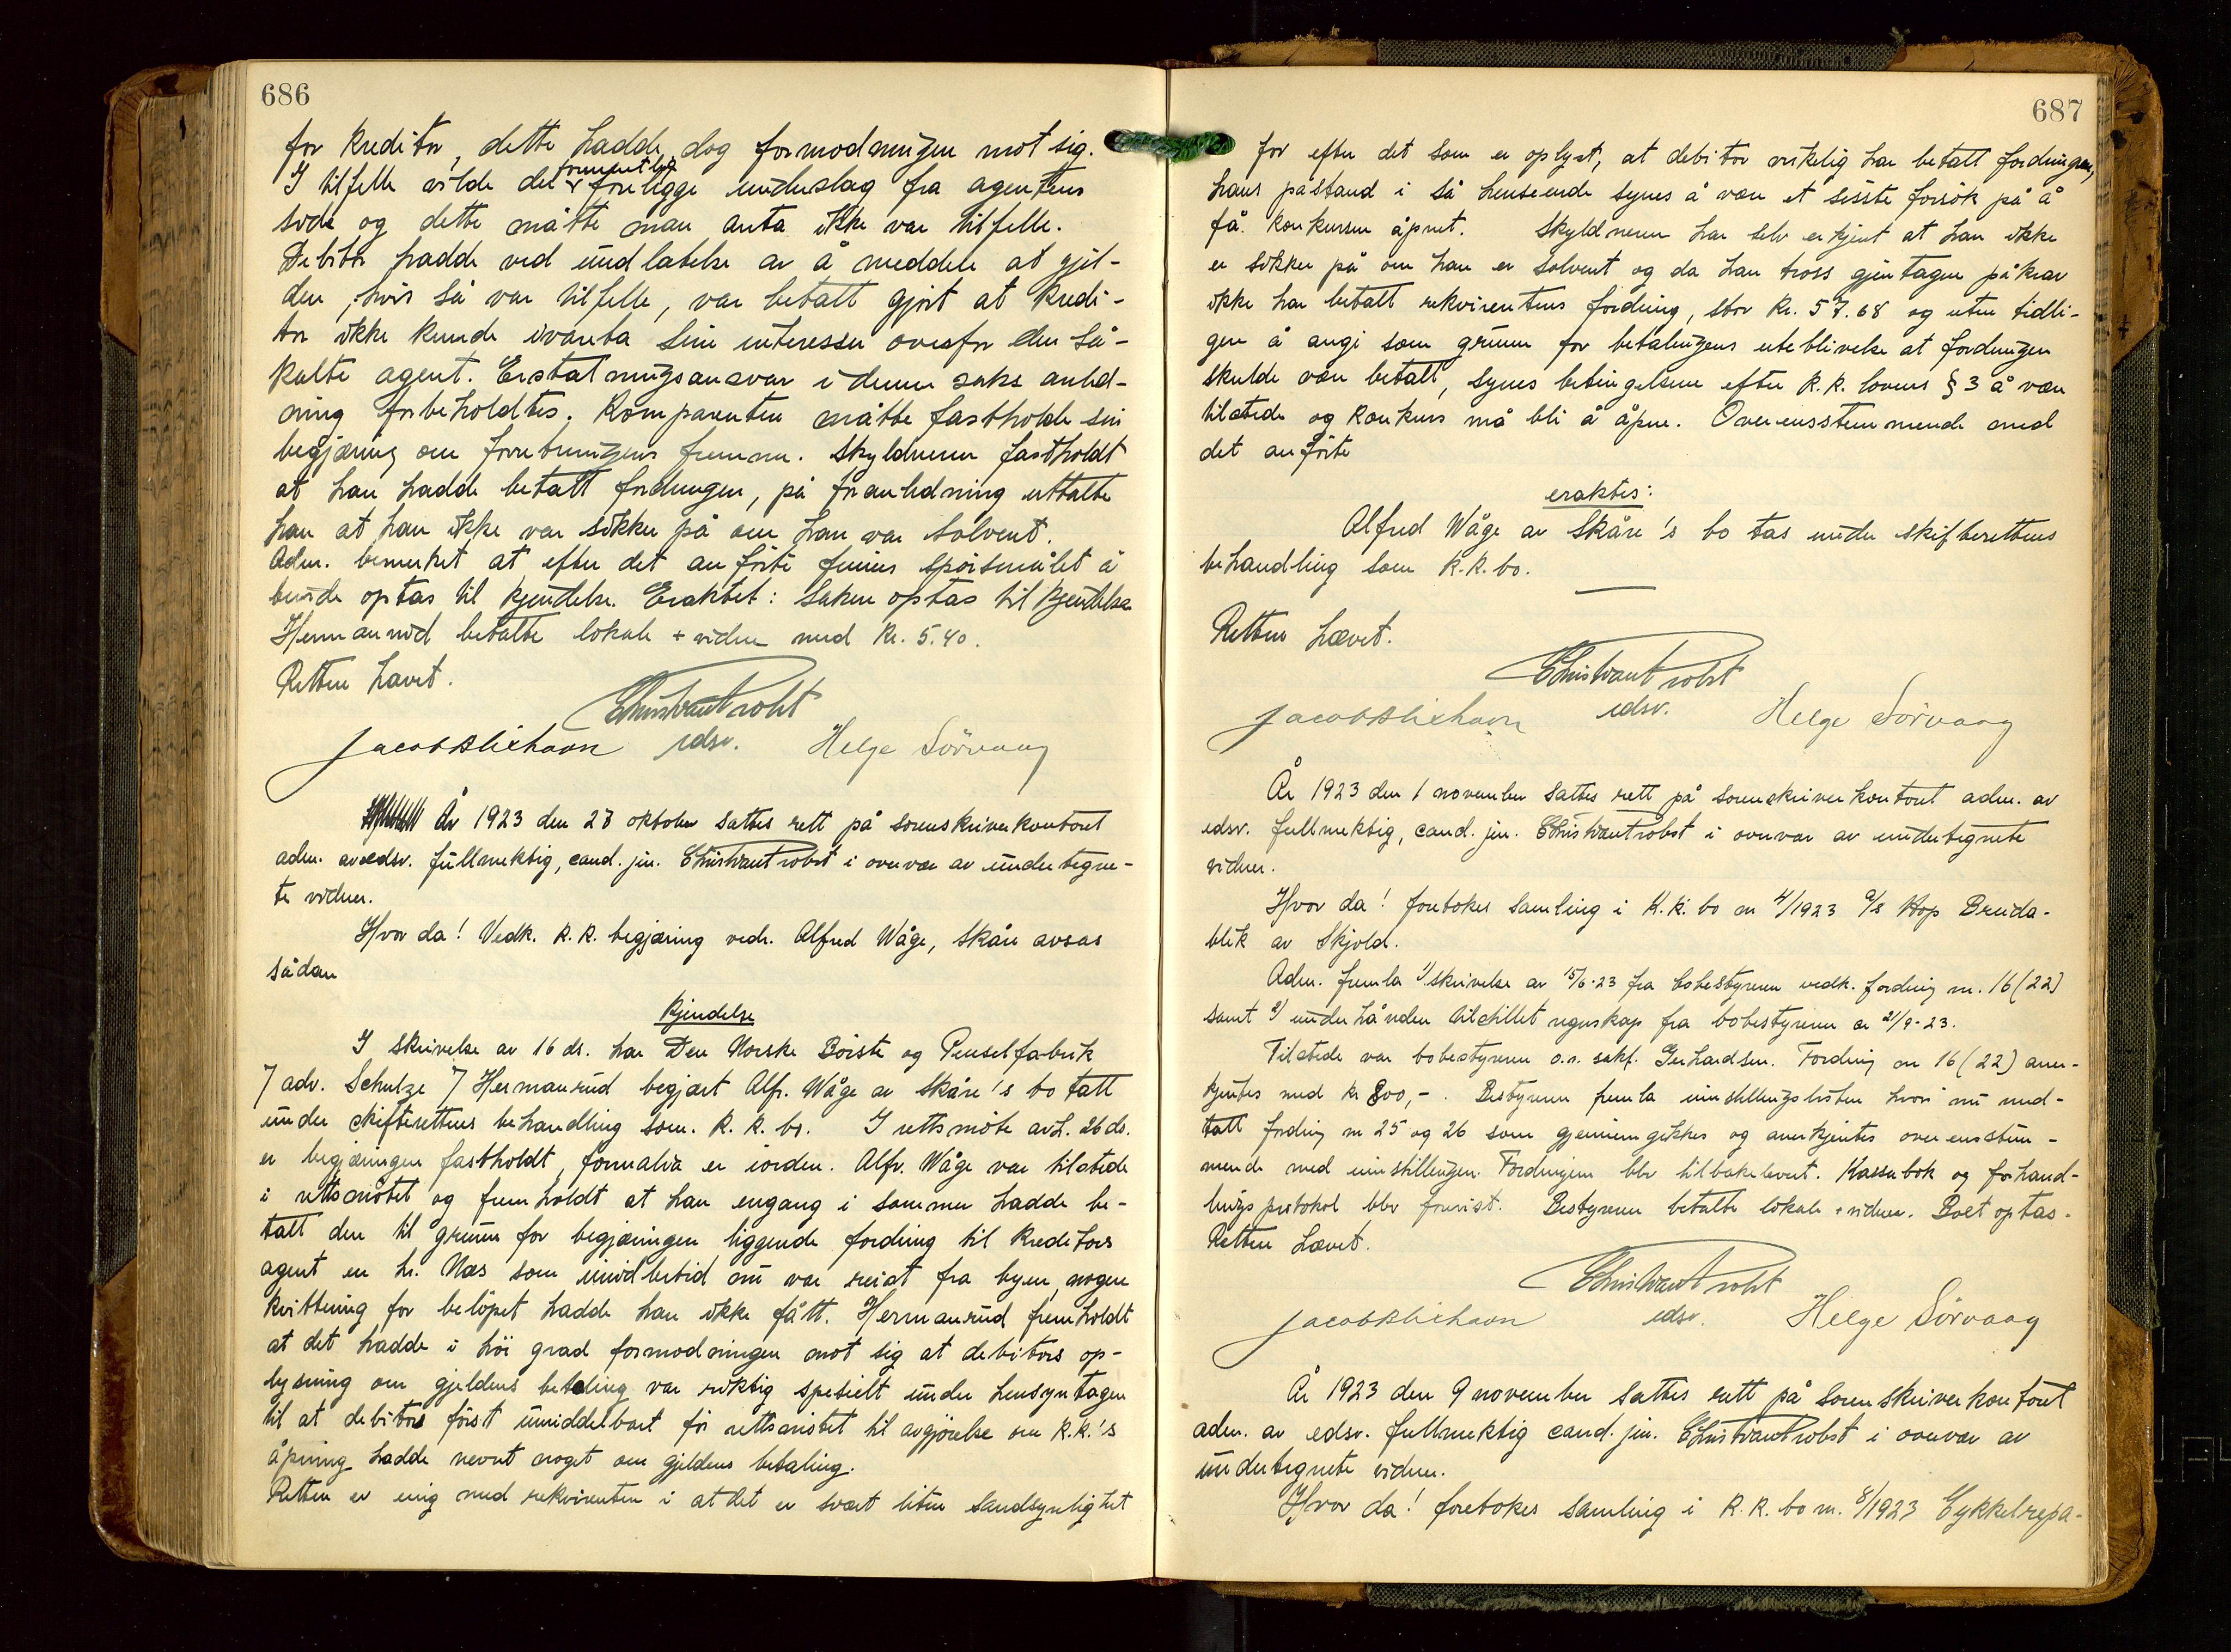 686
for kreditor, dette hadde dog formodningen mot sig.
I tilfelle vilde det formentlig foreligge underslag fra agentens
side og dette måtte man anta ikke var tilfelle.
Debitor hadde ved undlatelse av å meddele at gjel-
den, hvis så var tilfelle, var betalt gjort at kredi-
tor ikke kunde ivareta sine interesser overfor den så-
kalte agent. Erstatningsansvar i denne saks anled-
ning forbeholdtes. Komparenten måtte fastholde sin
begjæring om forretningens fremme. Skyldneren fastholdt
at han hadde betalt fordringen, på foranledning uttalte
han at han ikke var sikker på om han var solvent.
Adm. bemerket at efter det anförte finnes spörsmålet å
burde optas til kjendelse. Eraktet: Saken optas til kjendelse
Hermanrud betalte lokale + vidner med kr. 5.40.
Retten hævet.
Chr. Wantrobst
Jacob Blixhavn edsv. Helge Sörvaag
År 1923 den 28 oktober sattes rett på sorenskriverkontoret
adm. av edsv. fullmektig, cand. jur. Chr. Wantrobst i overvær av undertegne-
te vidner.
Hvor da! Vedk. K.K. begjæring vedr. Alfred Wåge, Skåre avsas
sådan
Kjendelse
I skrivelse av 16 ds. har Den Norske Börste og Penselfabrik
7 adv. Schulze 7 Hermanrud begjært Alfr. Wåge av Skåre's bo tatt
under skifterettens behandling som K.K. bo. I rettsmöte avh. 26 ds.
er begjæringen fastholdt, formalia er iorden. Alfr. Wåge var tilstede
i rettsmötet og fremholdt at han engang i sommer hadde be-
talt den til grunn for begjæringen liggende fordring til kreditors
agent en hr. Næs som imidlertid nu var reist fra byen, nogen
kvittering for belöpet hadde han ikke fått. Hermanrud fremholdt
at det hadde i höi grad formodningen mot sig at debitors op-
lysning om gjeldens betaling var riktig spesielt under hensyntagen
til at debitor först umiddelbart för rettsmötet til avgjörelse om K.K.'s
åpning hadde nevnt noget om gjeldens betaling.
Retten er enig med rekvirenten i at det er svært liten sandsynlighet
687
for efter det som er oplyst, at debitor virkelig har betalt fordringen,
hans påstand i så henseende synes å være et sisste forsök på å
få konkursen åpnet. Skyldneren har selv erkjent at han ikke
er sikker på om han er solvent og da han tross gjentagne påkrav
ikke har betalt rekvirentens fordring, stor kr. 57.68 og uten tidli-
gere å angi som grunn for betalingens uteblivelse at fordringen
skulde være betalt, synes betingelsene efter K.K. lovens § 3 å være
tilstede og konkurs må bli å åpne. Overensstemmende med
det anförte
eraktes:
Alfred Wåge av Skåre's bo tas under skifterettens
behandling som K.K. bo.
Retten hævet.
Chr. Wantrobst
Jacob Blixhavn edsv. Helge Sörvaag
År 1923 den 1 november sattes rett på sorenskriverkontoret adm. av
edsv. fullmektig, cand. jur. Chr. Wantrobst i overvær av undertegnete
vidner.
Hvor da! foretokes samling i K.K. bo nr 4/1923 A/S Hop Breida-
blik av Skjold.
Adm. fremla 1/ skrivelse av 15/6-23 fra bobestyreren vedk. fordring nr. 16 (22)
samt 2/ under hånden tilstillet regnskap fra bobestyreren av 21/9-23.
Tilstede var bobestyreren o.r. sakf. Gerhardsen. Fordring nr 16 (22) aner-
kjentes med kr 800,-. Bestyreren fremla innstillingslisten hvori nu med-
tatt fordring nr 25 og 26 som gjennemgikkes og anerkjentes overensstem-
mende med innstillingen. Fordringene blev tilbakelevert. Kassabok og forhand-
lingsprotokol blev forevist. Bestyreren betalte lokale + vidner. Boet optas.
Retten hævet.
Chr. Wantrobst
Jacob Blixhavn edsv. Helge Sörvaag
År 1923 den 9 november sattes rett på sorenskriverkontoret
adm. av edsv. fullmektig cand. jur. Chr. Wantrobst i overvær av
undertegnete vidner.
Hvor da! foretokes samling i K.K. bo nr. 8/1923 Cykkelrepa-